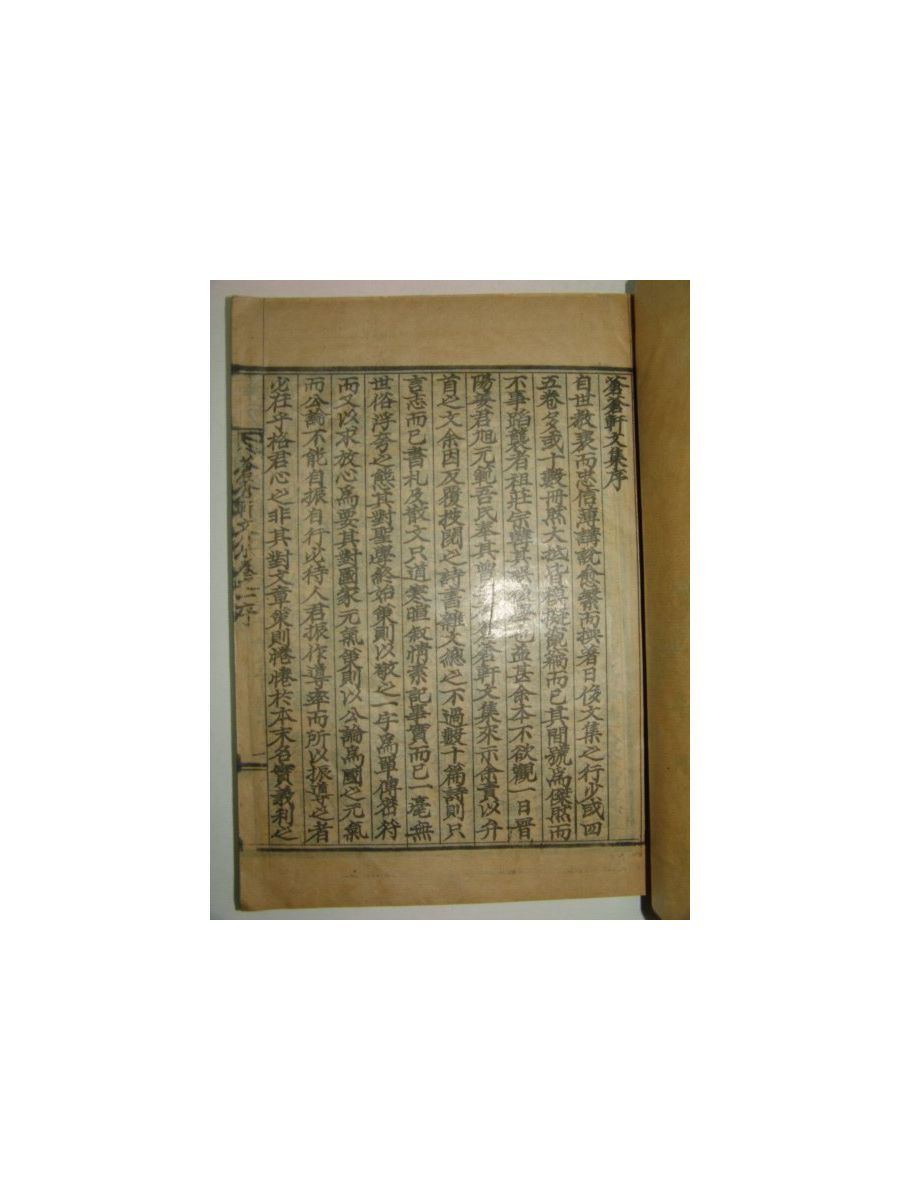 蒼蒼軒文集序
自世敎衰而忠信薄講說愈繁而撰著日侈文集之行少或四
五卷多或十數冊然大抵皆模擬飽稿而已其間號爲傑然而
不事蹈襲者祖莊宗韓其也益甚余本不欲觀一日晋
陽姜君旭元範吾氏奉其蒼軒文集來示余責以弁
首之文余因反覆披閱之詩書雜文總之不過數十篇詩則只
言志而已書札及散文只道寒暄叙情素記事實而已一毫無
世俗浮夸之態其對聖學終始策則以敬之一字爲單傳密符
而又以求放心爲要其對國家元氣策則以公論爲國之元氣
而公論不能自振自行必待人君振作導率而所以振導之者
必在乎格君心之非其對文章策則惓惓於本末名實義利之
序